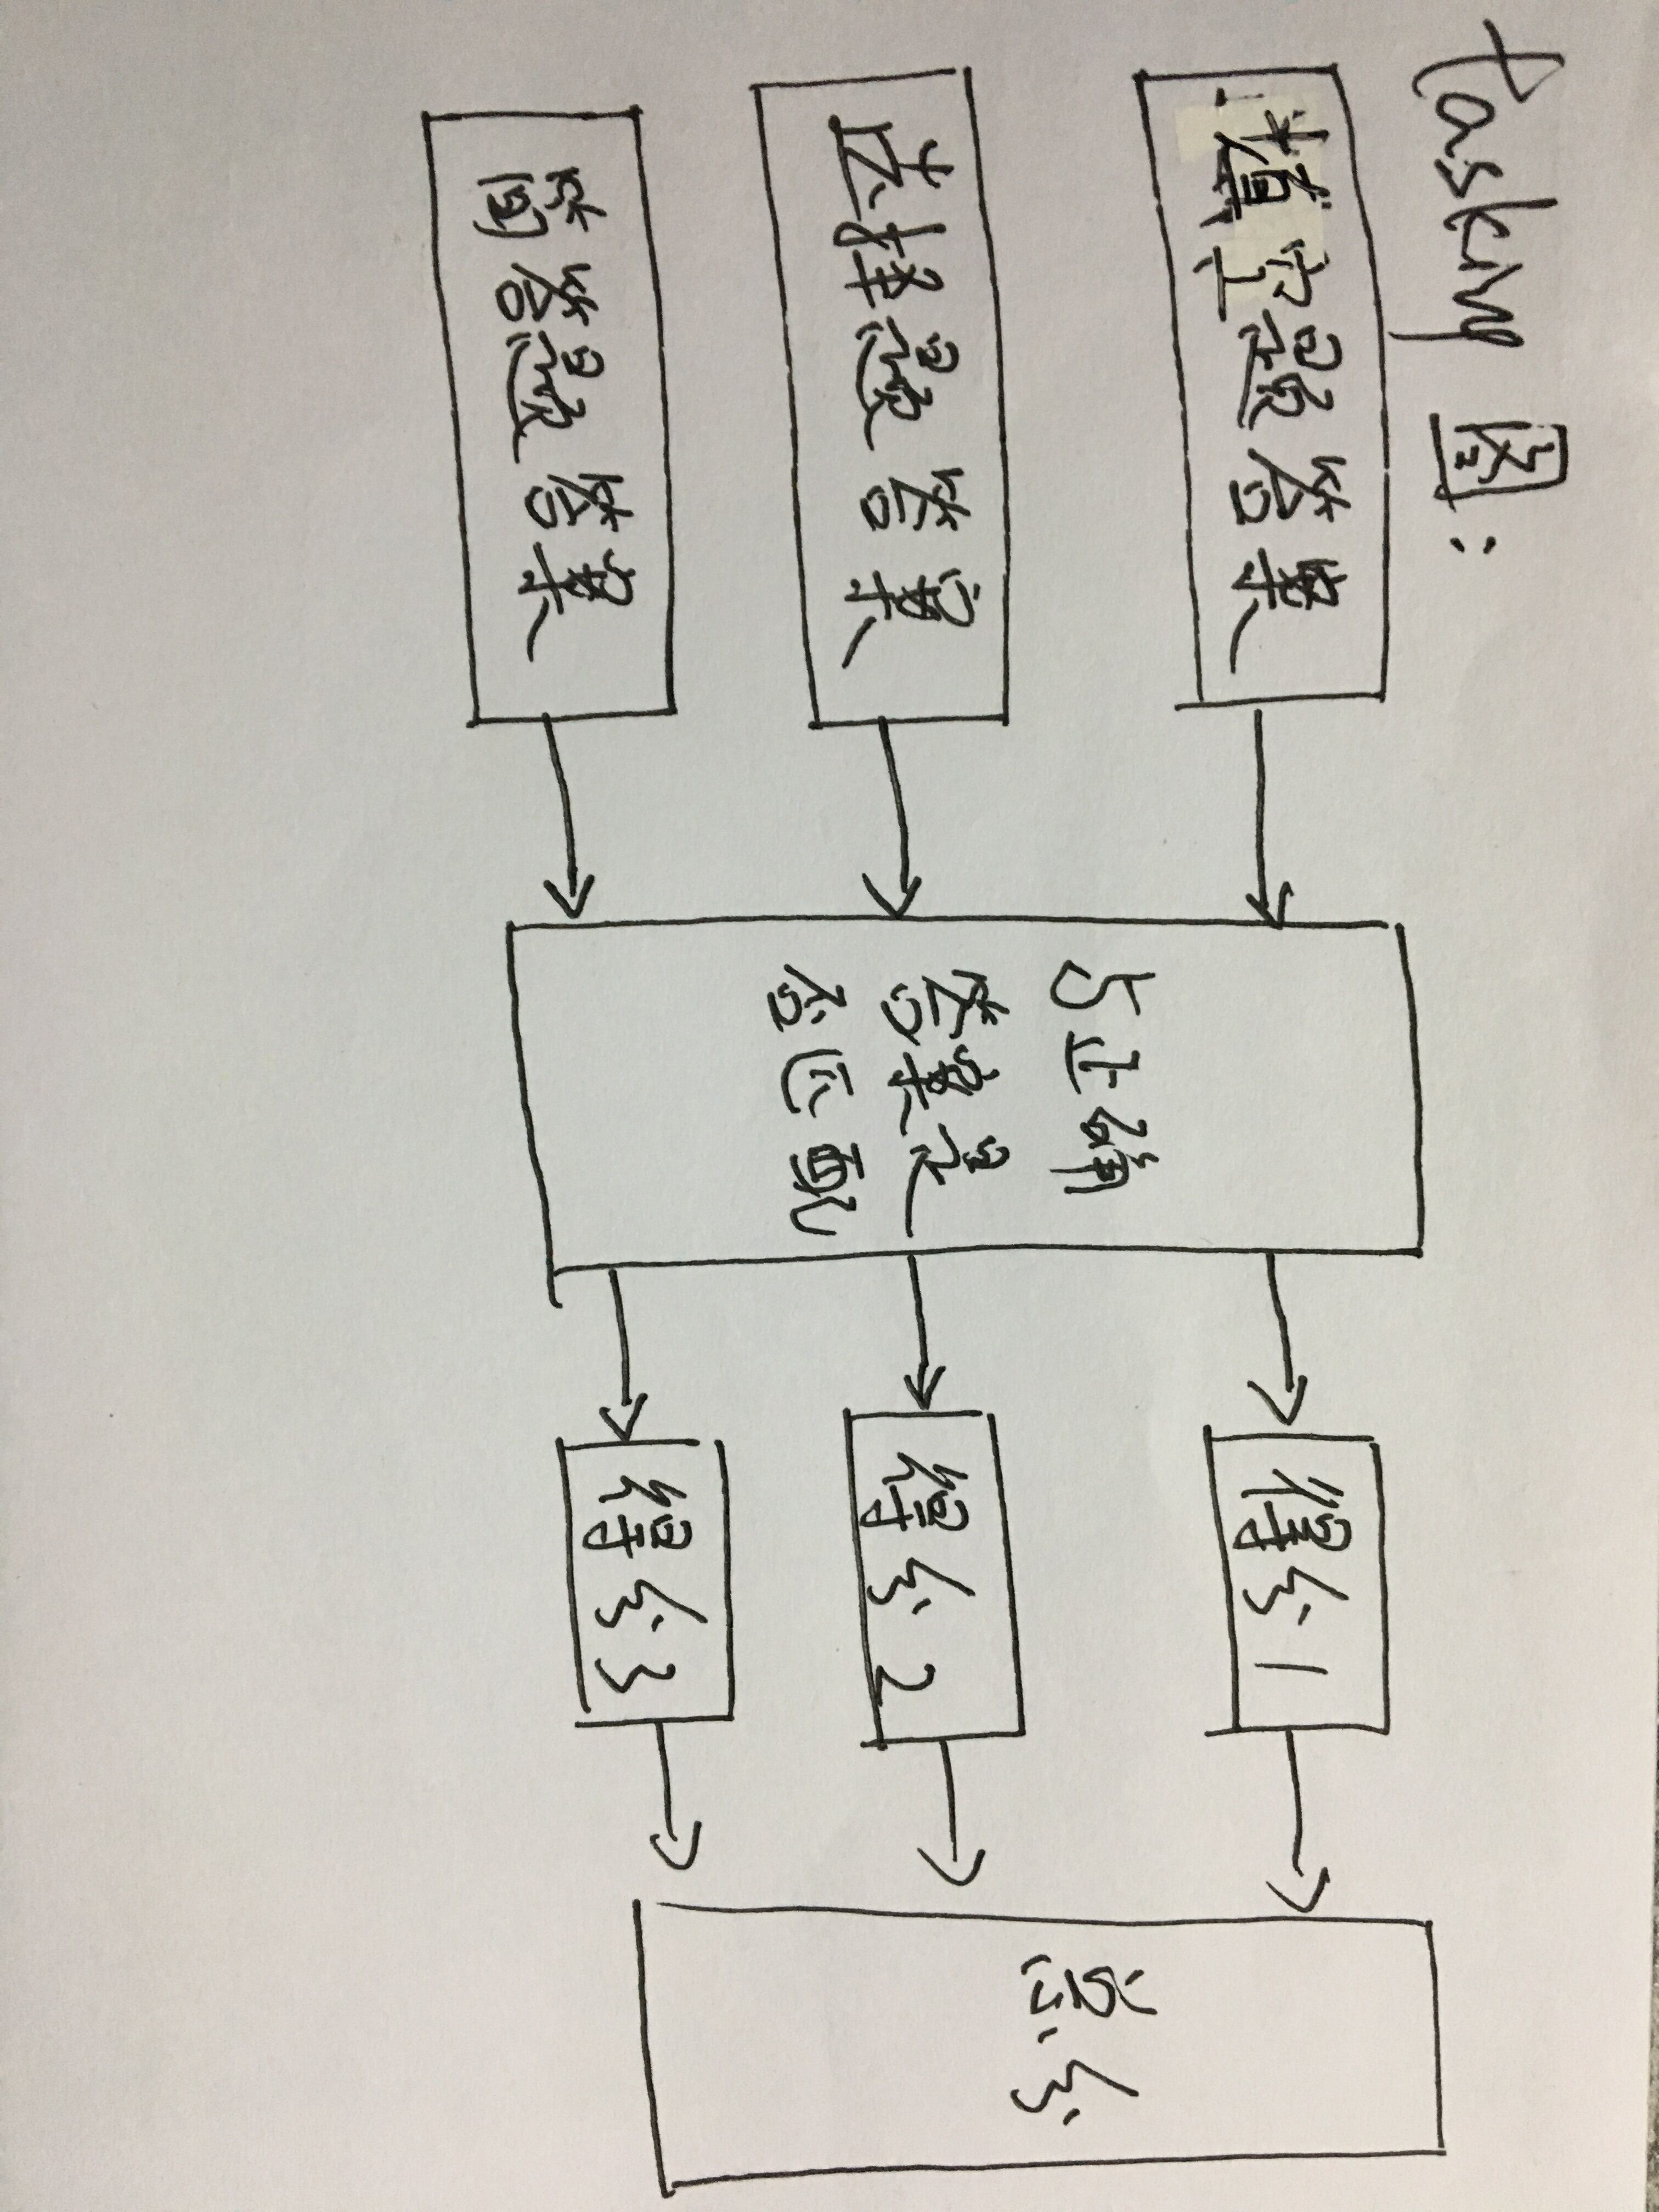 tasking图：
填空题答案
选择题答案
简答题答案
与正确
答案是
否匹配
得分1
得分2
得分3
总分